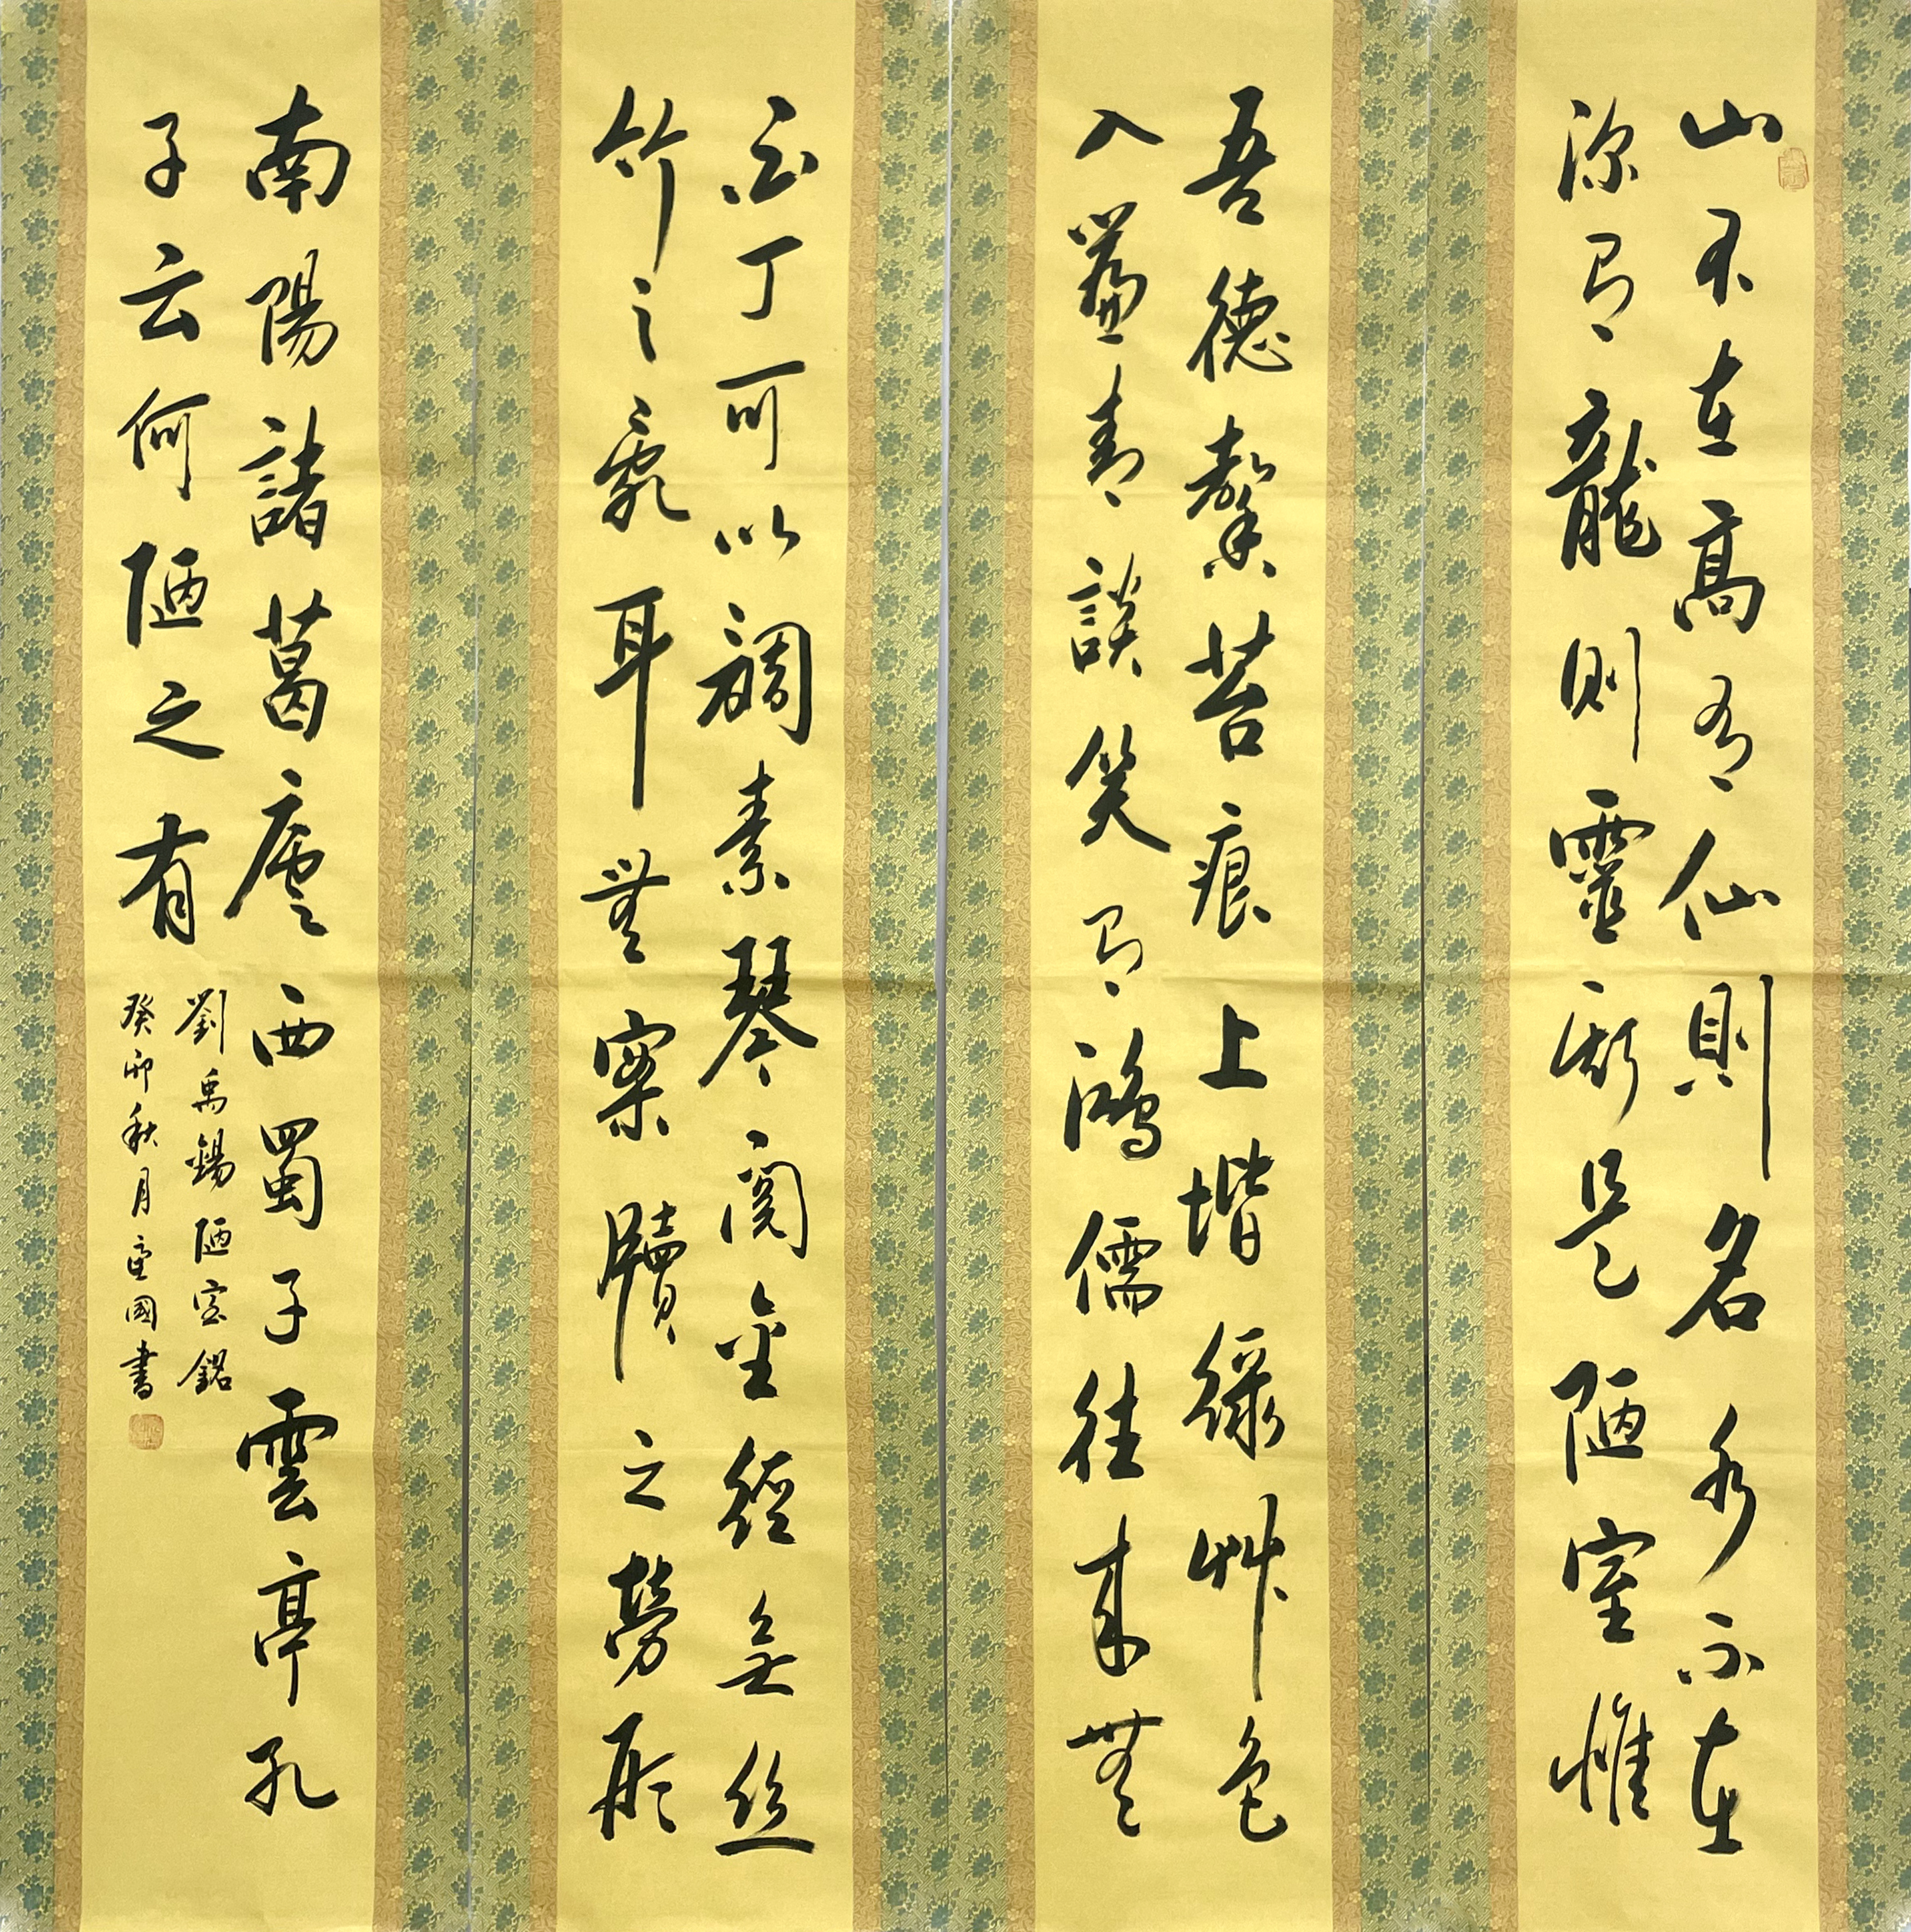 山不在高有仙則名水不在
深有龍則靈斯是陋室惟
吾德馨苔痕上堦綠艸色
入簾青談笑有鴻儒往来無
白丁可以調素琴閱金經無丝
竹之亂耳無案牘之勞形
南陽諸葛廬西蜀子雲亭孔
子云何陋之有
劉禹錫陋室銘
癸卯秋月國書